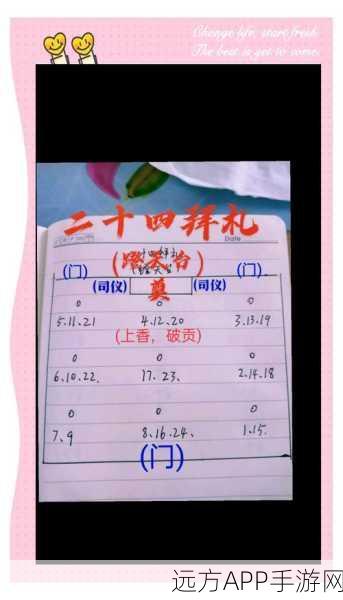 Change life, start fresh
The best is yet to come.
二十四拜礼
Date
(蹬奠台)
(门) (门)
(司仪) 奠 (司仪)
0 0 0
5.11.21 4.12.20 3.13.19
(上香，破贡)
0 0 0
6.10.22. 17.23. 2.14.18
0 0 0
7.9 8.16.24. 1.15.
(门)
远方APP手游网